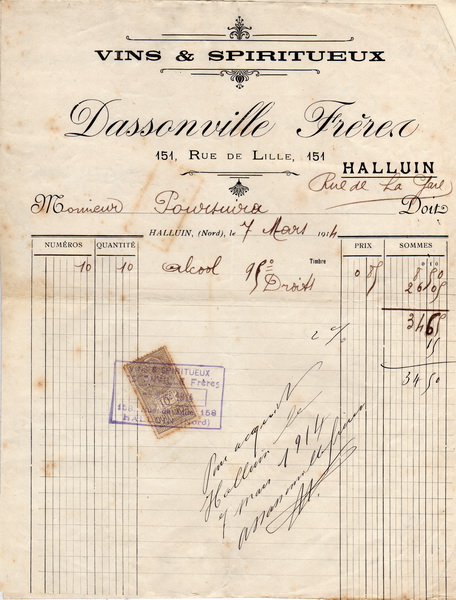 VINS & SPIRITUEUX
Dassonville Frères
151, RUE DE LILLE, 151
HALLUIN
Rue de La Gare
Monsieur Doit
HALLUIN, (Nord), le 7 Mars 1914
NUMÉROS QUANTITÉ Timbre PRIX SOMMES
10 10 alcool 95° 0 85 8 50
Droits
2 %
34 50
VINS & SPIRITUEUX
Frères
158 158
HALLUIN (Nord)
Pour acquit
Halluin le
7 mars 1914
Dassonville frères